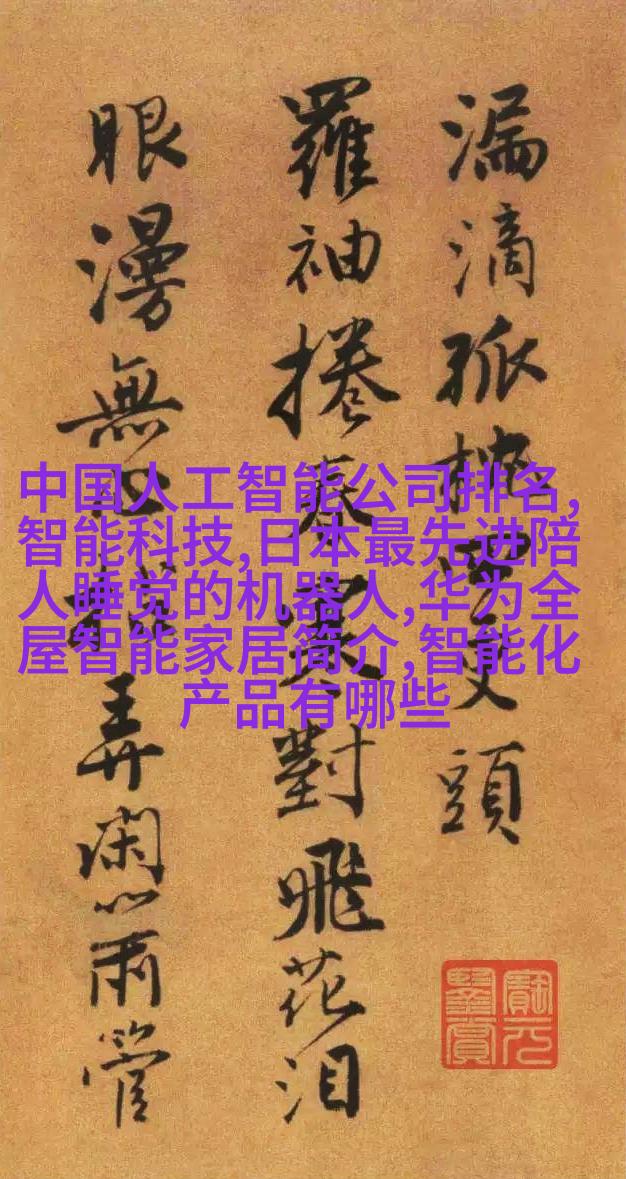 漏滴孤更頭
羅袖捲春寒對飛花泪
眼漫無心弄閑心兩管
中国人工智能公司排名,
智能科技,日本最先进陪
人睡觉的机器人,华为全
屋智能家居简介,智能化
产品有哪些